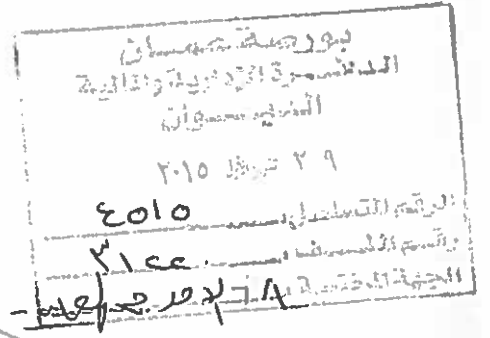 بورصة عمان
الدائرة الإدارية والمالية
الديوان
٢٩ تموز ٢٠١٥
الرقم المتسلسل ٤٥١٥
رقم الملف ٣١٢٢
الجهة المختصة